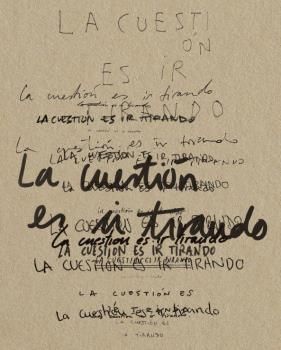 LA CUESTI
ÓN
ES IR
La cuestión es ir tirando
TIRANDO
LA CUESTIÓN ES IR TIRANDO
La cuestión es ir tirando
LA CUESTIÓN ES IR TIRANDO
La cuestión
es ir tirando
LA CUESTIÓN ES IR TIRANDO
La cuestión es ir tirando
LA CUESTIÓN ES IR TIRANDO
LA CUESTIÓN ES IR TIRANDO
LA CUESTIÓN ES
La cuestión es ir tirando
LA CUESTIÓN ES IR
TIRANDO